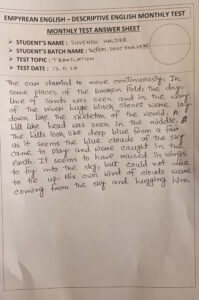 EMPYREAN ENGLISH – DESCRIPTIVE ENGLISH MONTHLY TEST
MONTHLY TEST ANSWER SHEET
STUDENT'S NAME : SUVENDU HALDER
STUDENT'S BATCH NAME :
TEST TOPIC : TRANSLATION
TEST DATE : 13.11.25
The car started to move continuously. In some
places of the broken field the dry
line of sands was seen and in the way
of the river huge black stones were lay
down like the skeleton of the world. A
hill like head was seen in the middle.
The hills look like deep blue from a far
as it seems the blue clouds of the sky
came to play and were caught in the
earth. It seems to have raised its wings
to fly into the sky, but could not due
to tie up. His own kind of clouds were
coming from the sky and hugging him.